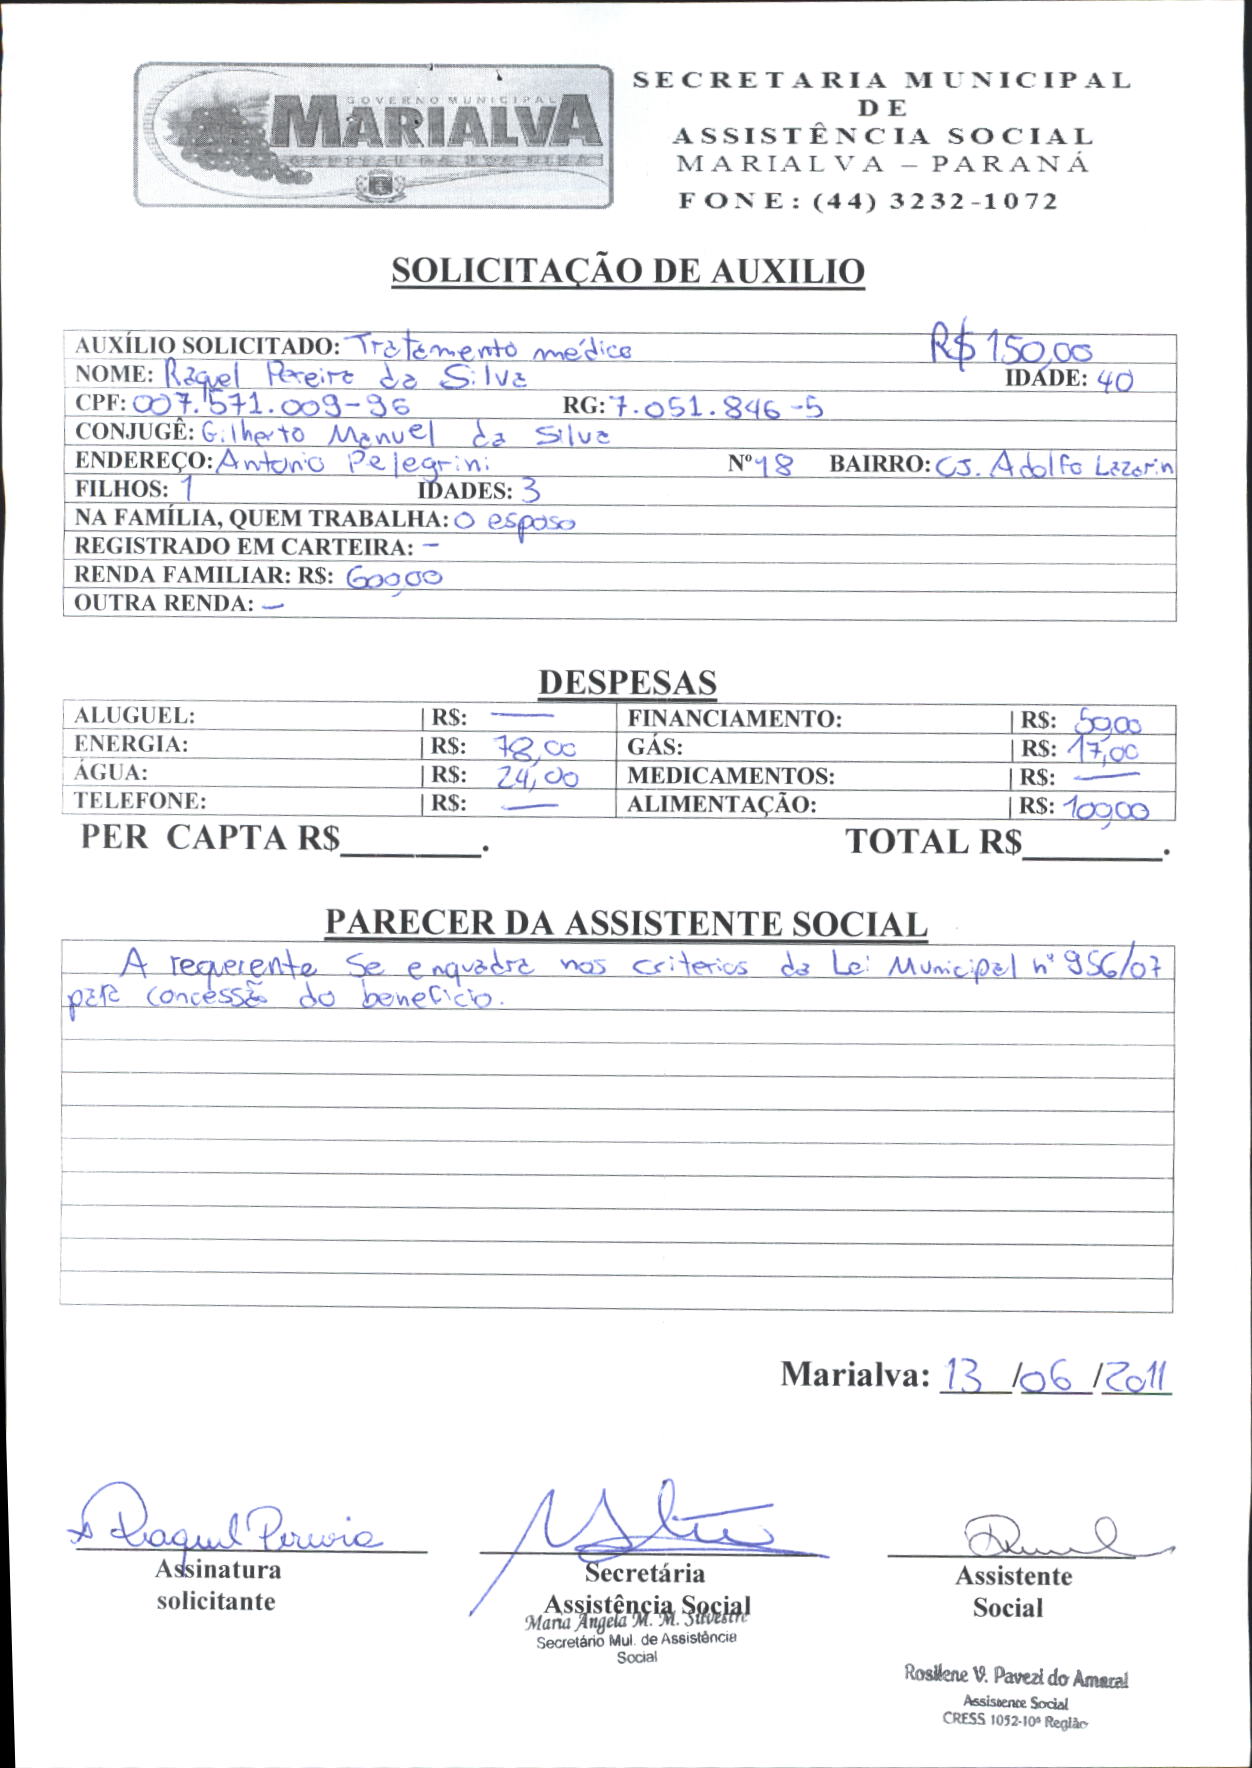 GOVERNO MUNICIPAL
MARIALVA
CAPITAL DA UVA FINA
SECRETARIA MUNICIPAL
DE
ASSISTÊNCIA SOCIAL
MARIALVA – PARANÁ
FONE: (44) 3232-1072
SOLICITAÇÃO DE AUXILIO
AUXÍLIO SOLICITADO: Tratamento médico R$ 150,00
NOME: Raquel Pereira da Silva IDADE: 40
CPF: 007.571.009-96 RG: 7.051.846-5
CONJUGÊ: Gilberto Manuel da Silva
ENDEREÇO: Antonio Pelegrini Nº 98 BAIRRO: CJ. Adolfo Lazarin
FILHOS: 1 IDADES: 3
NA FAMÍLIA, QUEM TRABALHA: O esposo
REGISTRADO EM CARTEIRA: –
RENDA FAMILIAR: R$: 600,00
OUTRA RENDA: –
DESPESAS
ALUGUEL: | R$: — FINANCIAMENTO: | R$: 50,00
ENERGIA: | R$: 78,00 GÁS: | R$: 17,00
ÁGUA: | R$: 24,00 MEDICAMENTOS: | R$: —
TELEFONE: | R$: — ALIMENTAÇÃO: | R$: 100,00
PER CAPTA R$________. TOTAL R$________.
PARECER DA ASSISTENTE SOCIAL
A requerente se enquadra nos criterios da Lei Municipal nº 956/07
para concessão do beneficio.
Marialva: 13 /06 /2011
Raquel Pereira
Assinatura
solicitante
Secretária
Assistência Social
Maria Angela M. M. Silvestre
Secretário Mul. de Assistência
Social
Assistente
Social
Rosilene V. Pavezi do Amaral
Assistente Social
CRESS 1052-10ª Região